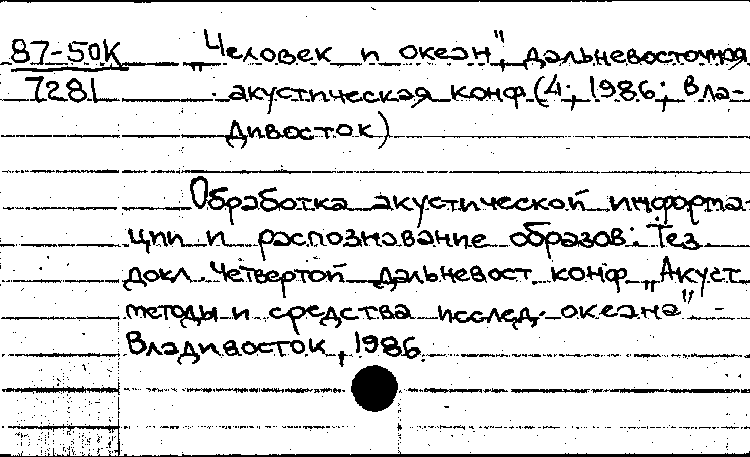 87-50К „Человек и океан", дальневосточная
7281 акустическая конф. (4; 1986; Вла-
дивосток)
Обработка акустической информа-
ции и распознавание образов: Тез.
докл. Четвертой дальневост. конф. „Акуст.
методы и средства исслед. океана" -
Владивосток, 1986.